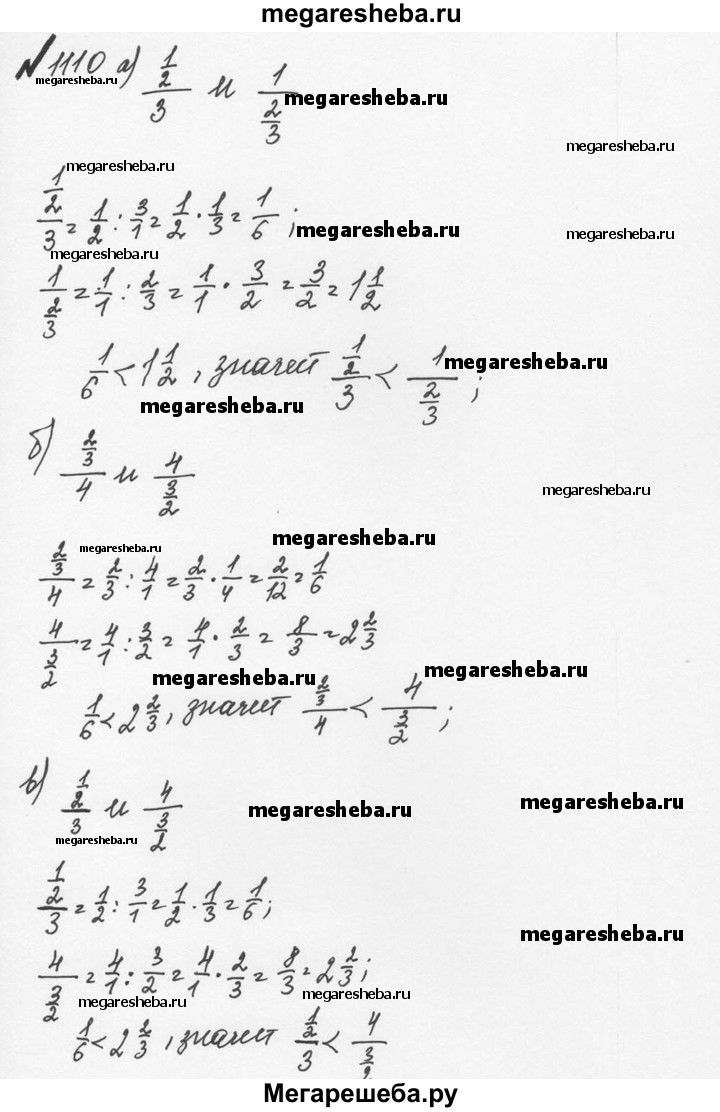 megaresheba.ru
№1110 а) (1/2)/3 и 1/(2/3)
megaresheba.ru
megaresheba.ru
megaresheba.ru
megaresheba.ru
(1/2)/3 = 1/2 : 3/1 = 1/2 · 1/3 = 1/6 ;
megaresheba.ru
megaresheba.ru
megaresheba.ru
1/(2/3) = 1/1 : 2/3 = 1/1 · 3/2 = 3/2 = 1 1/2
1/6 < 1 1/2 , значит (1/2)/3 < 1/(2/3) ;
megaresheba.ru
megaresheba.ru
б) (2/3)/4 и 4/(3/2)
megaresheba.ru
megaresheba.ru
megaresheba.ru
(2/3)/4 = 2/3 : 4/1 = 2/3 · 1/4 = 2/12 = 1/6
4/(3/2) = 4/1 : 3/2 = 4/1 · 2/3 = 8/3 = 2 2/3
megaresheba.ru
megaresheba.ru
1/6 < 2 2/3 , значит (2/3)/4 < 4/(3/2) ;
в) (1/2)/3 и 4/(3/2)
megaresheba.ru
megaresheba.ru
megaresheba.ru
(1/2)/3 = 1/2 : 3/1 = 1/2 · 1/3 = 1/6 ;
megaresheba.ru
4/(3/2) = 4/1 : 3/2 = 4/1 · 2/3 = 8/3 = 2 2/3 ;
megaresheba.ru
megaresheba.ru
1/6 < 2 2/3 , значит (1/2)/3 < 4/(3/2)
Мегарешеба.ру